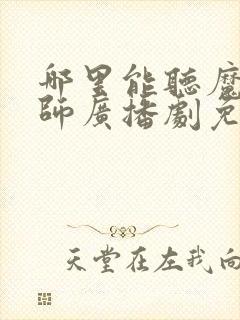 哪里能聽魔
師廣播劇免
天堂在左我向